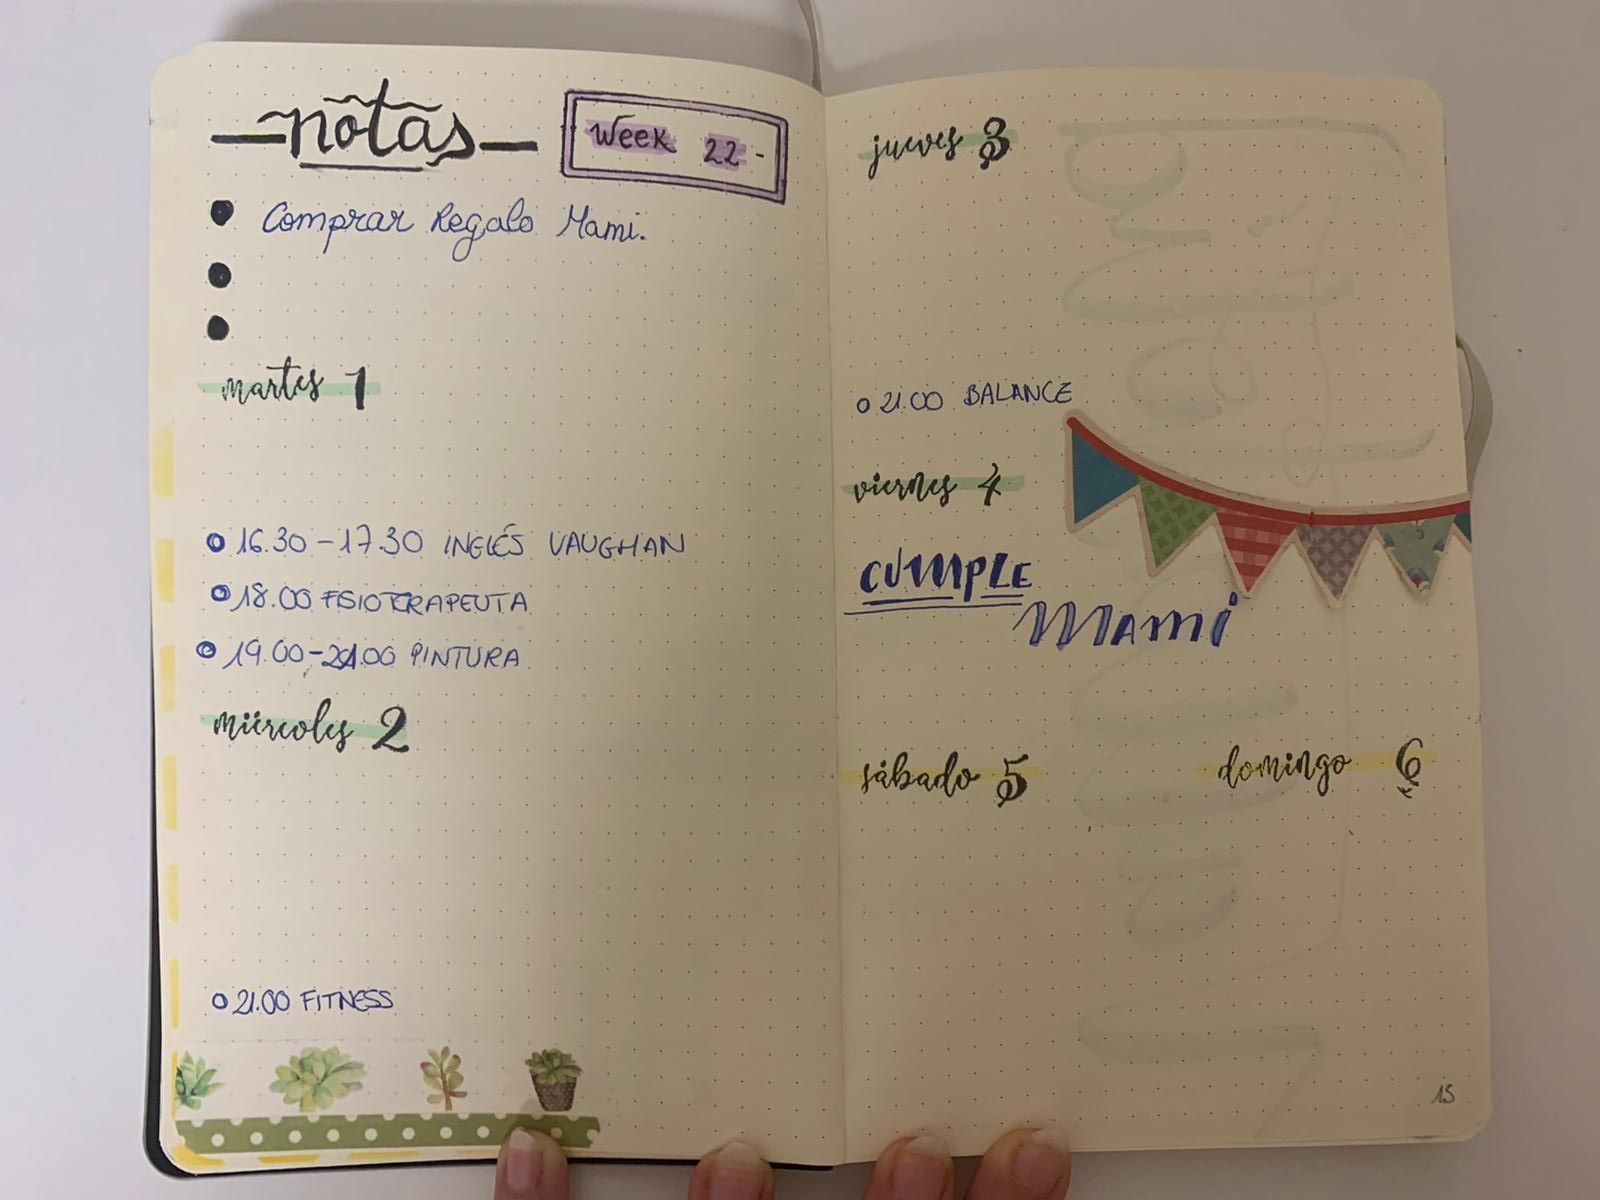 notas
Week 22-
Comprar Regalo Mami.
martes 1
16.30-17.30 INGLÉS VAUGHAN
18.00 FISIOTERAPEUTA
19.00-21.00 PINTURA
miércoles 2
21.00 FITNESS
jueves 3
21.00 BALANCE
viernes 4
CUMPLE
MAMI
sábado 5
domingo 6
15